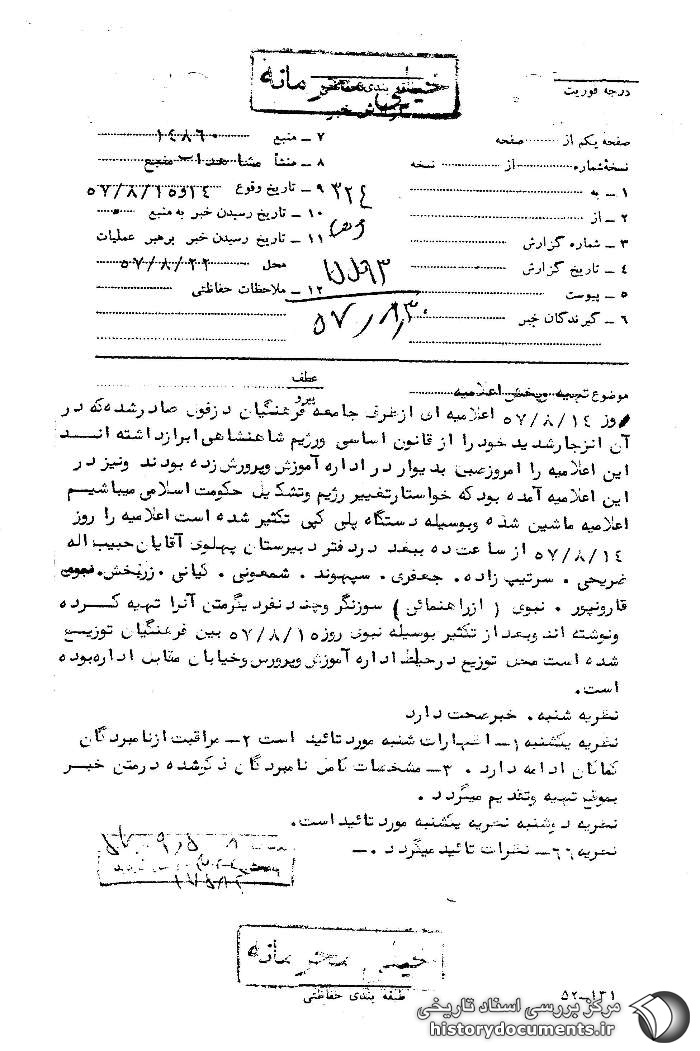 خیلی محرمانه
طبقه بندی حفاظتی
گزارش خبر
درجه فوریت
صفحه یکم از صفحه
نسخه شماره از نسخه
۱ ـ به
۲ ـ از
۳ ـ شماره گزارش
۴ ـ تاریخ گزارش
۵ ـ پیوست
۶ ـ گیرندگان خبر
۷ ـ منبع ۱۴۸۶۰
۸ ـ منشأ مشاهدات منبع
۹ ـ تاریخ وقوع ۱۴و۵۷/۸/۱۵
۱۰ ـ تاریخ رسیدن خبر به منبع
۱۱ ـ تاریخ رسیدن خبر برهبر عملیات
محل ۵۷/۸/۲۲
۱۲ ـ ملاحظات حفاظتی
۳۲۴
عطف
پیرو
موضوع تهیه وپخش اعلامیه
روز ۵۷/۸/۱۴ اعلامیه ای ازطرف جامعه فرهنگیان دزفول صادرشده‌که در
آن انزجارشدید خودرا از قانون اساسی ورژیم شاهنشاهی ابرازداشته انــد
این اعلامیه را امروزصبح بدیوار در اداره آموزش وپرورش زده بودند ونیز در
این اعلامیه آمده بودکه خواستارتغییر رژیم وتشکیل حکومت اسلامی میباشیم
اعلامیه ماشین شده وبوسیله دستگاه پلی کپی تکثیر شده است اعلامیه را روز
۵۷/۸/۱۴ از ساعت ده ببعد دردفتر دبیرستان پهلوی آقایان‌حبیب اله
ضریحی . سرتیپ زاده . جعفری . سپهوند . شمعونی . کیانی . زرنخش.
قارونپور . نبوی ( ازراهنمائی ) سوزنگر وچند نفردیگرمتن آنرا تهیه کــرده
ونوشته اند وبعداز تکثیر بوسیله نبوی روز ۵۷/۸/۱۵ بین فرهنگیان توزیــع
شده است محل توزیع درحیاط اداره آموزش وپرورس وخیابان مقابل اداره‌بوده
است.
نظریه شنبه . خبرصحت دارد
نظریه یکشنبه ۱ـ اظهارات شنبه مورد تائید است ۲ـ مراقبت ازنامبردگان
کماکان ادامه دارد . ۳ـ مشخصات کامل نامبردگان ذکرشده درمتن خبــر
بموقع تهیه وتقدیم میگردد .
نظریه دوشنبه نظریه یکشنبه مورد تائیداست.
نظریه ۶۶ـ نظرات تائید میگردد .ـ
خیلی محرمانه
طبقه بندی حفاظتی
۵۲ـ۱۳۱
مرکز بررسی اسناد تاریخی
historydocuments.ir